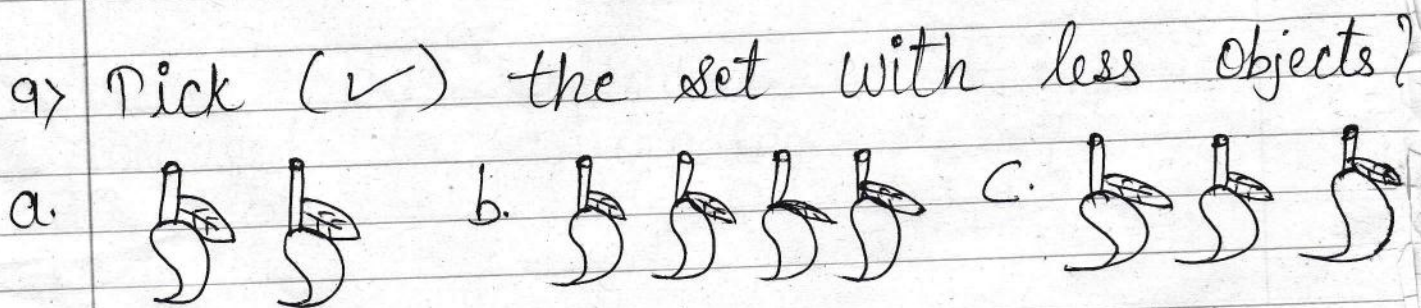 9) Tick (✓) the set with less objects?
a. b. c.